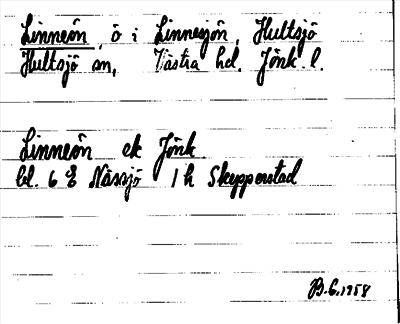 Linneön, ö i Linnesjön, Hultsjö
Hultsjö sn, Västra hd. Jönk. l.
Linneön ek Jönk
bl. 6 E Nässjö 1 h Skepperstad
B.E. 1958